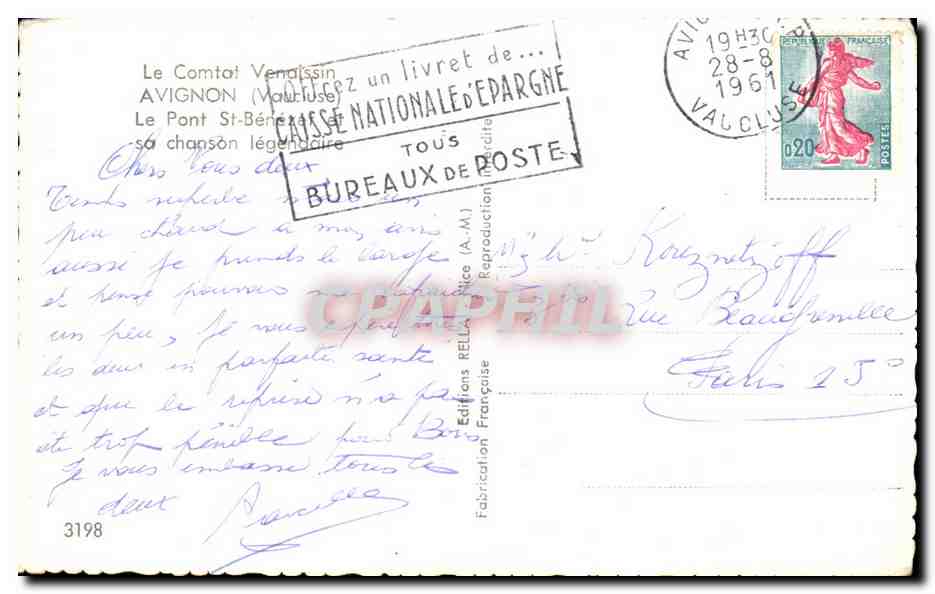 Le Comtat Venaissin
AVIGNON (Vaucluse)
Le Pont St-Bénézet et
sa chanson légendaire
Offrez un livret de...
CAISSE NATIONALE D'EPARGNE
TOUS
BUREAUX DE POSTE
AVIGNON
19H30
28-8
1961
VAUCLUSE
REPUBLIQUE FRANÇAISE
0,20
POSTES
Chers Vous deux
Temps superbe un
peu chaud à mon avis
aussi je prends le large
et pense pouvoir me
un peu, Je vous espère
les deux en parfaite santé
et que la reprise n'a pas
été trop pénible pour Boris
Je vous embrasse tous les
deux
Editions RELLA, Nice (A.-M.)
Fabrication Française Reproduction Interdite
CPAPHIL
Kouznetzoff
Rue Beaugrenelle
Paris 15°
3198